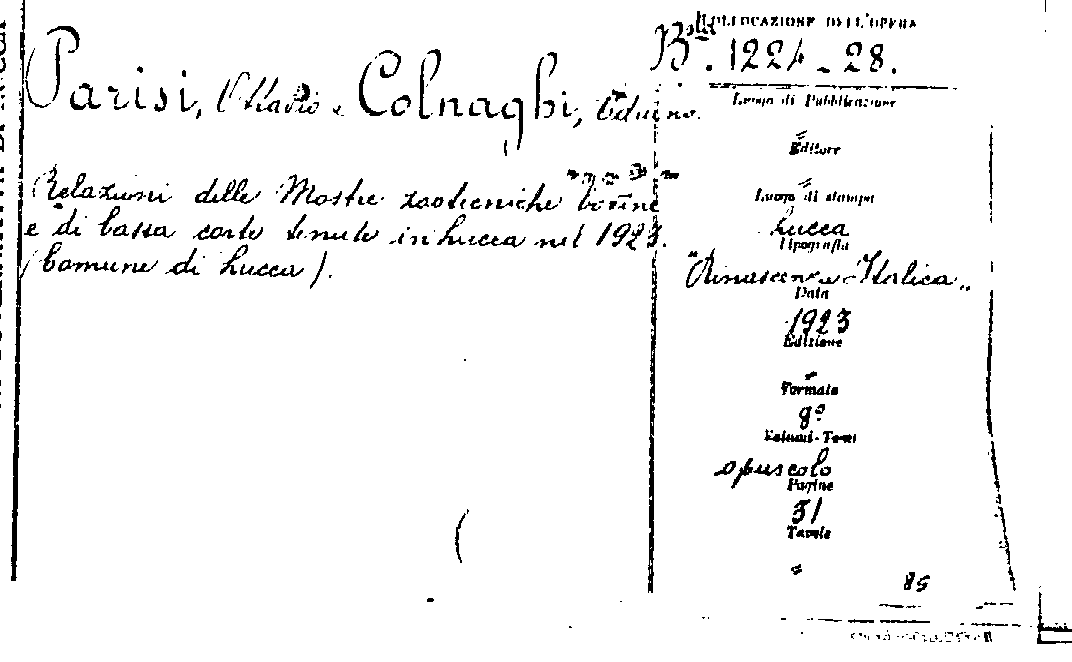 COLLOCAZIONE DELL'OPERA
Bta. 1224-28.
Parisi, Ottavio e Colnaghi, Eduino.
Relazioni delle Mostre zootecniche bovine
e di bassa corte tenute in Lucca nel 1923.
(Comune di Lucca).
Luogo di Pubblicazione
"
Editore
"
Luogo di stampa
Lucca
Tipografia
"Rinascenza Italica"
Data
1923
Edizione
"
Formato
8º
Volumi-Tomi
opuscolo
Pagine
31
Tavole
"
85